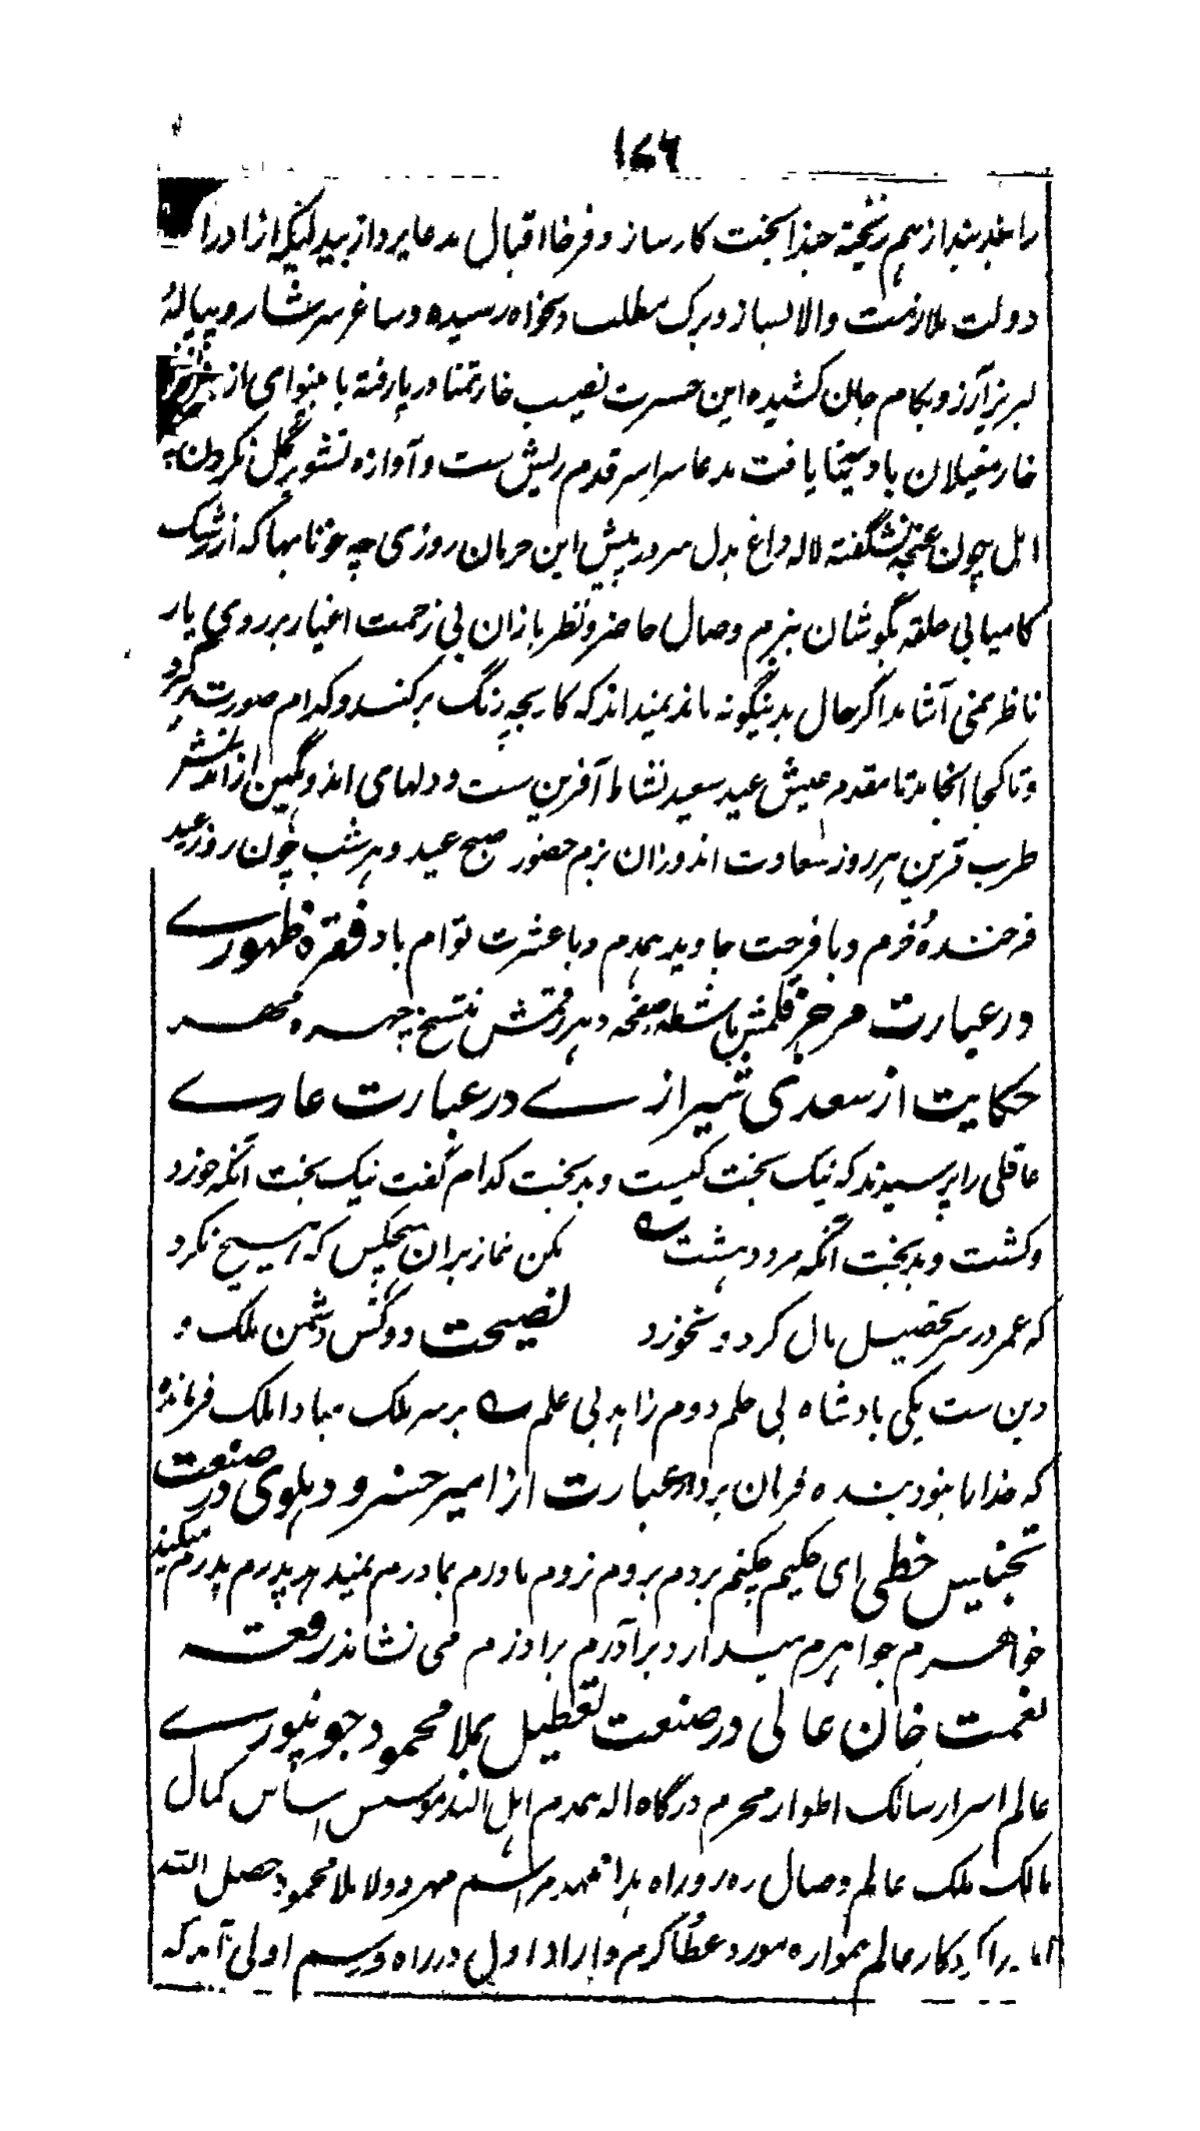 ۱۷۶
را بند بند از هم ریخته حبذا بخت کارساز و فرخا اقبال مدعا پرداز بیدلیکه از ادراک
دولت ملازمت والا بساز و برگ مطلب دلخواه رسیده و ساغر سرشار و پیالهٔ
لبریز آرزو بکام جان کشیده این حسرت نصیب خار تمنا در پا رفته با بینوای از
خار مغیلان بادیه نایافت مدعا سراسر قدم ریش ست و آوازه نشو بر گل نکردن
امل چون غنچه نشگفته لاله داغ بدل سر در پیش این حرمان روزی چه خونابها که از رشک
کامیابی حلقه بگوشان بزم وصال حاضر و نظر بازان بی زحمت اغیار بر روی یار
ناظر نمی آشامد اگر حال بدینگونه ماند نمیداند که کار بچه رنگ بر کند و کدام صورت پذیرد
و تا کجا انجامد تا مقدم عیش عید سعید نشاط آفرین ست و دلهای اندوهگین از آمدنش
طرب قرین هر روز سعادت اندوزان بزم حضور صبح عید و هر شب چون روز عید
فرخنده و خرم و با فرحت جاوید همدم و با عشرت توام باد فقره ظهورے
در عبارت مرجز قلمش مشاطه صفحه و هر رقمش نسخ چهره مهر
حکایت از سعدی شیرازے در عبارت عارے
عاقلی را پرسیدند که نیک بخت کیست و بدبخت کدام گفت نیک بخت آنکه خورد
و کشت و بدبخت آنکه مرد و هشت ؎ مکن نماز بران هیچکس که هیچ نکرد
که عمر در سر تحصیل مال کرد و نخورد نصیحت دو کس دشمن ملک و
دین ست یکی بادشاه بی حلم دوم زاهد بی علم ؎ بر سر ملک مباد آن ملک فرمانده
که خدا را نبود بنده فرمان بردار عبارت از امیر خسرو دهلوی در صنعت
تجنیس خطی ای حکیم چکنم بردم بروم نزدم مادرم بمادرم نمیدهد پدرم پدرم میکنید
خواهرم جواهرم میدارد برادرم برادرم می نشاند رقعه
نعمت خان عالی در صنعت تعطیل بملا محمود جونپورے
عالم اسرار سالک اطوار محرم درگاه اله همدم اهل الله موسس اساس کمال
مالک ملک عالم وصال رهرو راه هدا ممهد مراسم مهر و ولا ملا محمود حصل الله
کردگار عالم همواره مورد عطا و کرم دارد اول در راه و رسم اولی آمد که